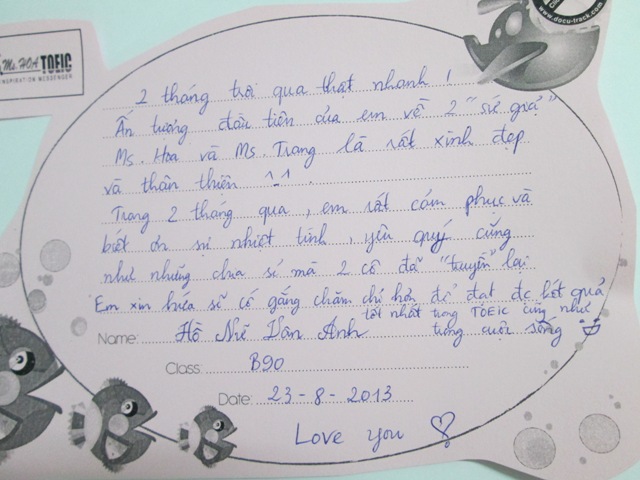 Ms. HOA TOEIC
INSPIRATION MESSENGER
www.docu-track.com
2 tháng trôi qua thật nhanh !
Ấn tượng đầu tiên của em về 2 "sứ giả"
Ms. Hoa và Ms. Trang là rất xinh đẹp
và thân thiện ^-^
Trong 2 tháng qua, em rất cảm phục và
biết ơn sự nhiệt tình, yêu quý cũng
như những chia sẻ mà 2 cô đã "truyền" lại
Em xin hứa sẽ cố gắng chăm chỉ hơn để đạt đc kết quả
tốt nhất trong TOEIC cũng như
trong cuộc sống
Name: Hồ Như Vân Anh
Class: B90
Date: 23-8-2013
Love you